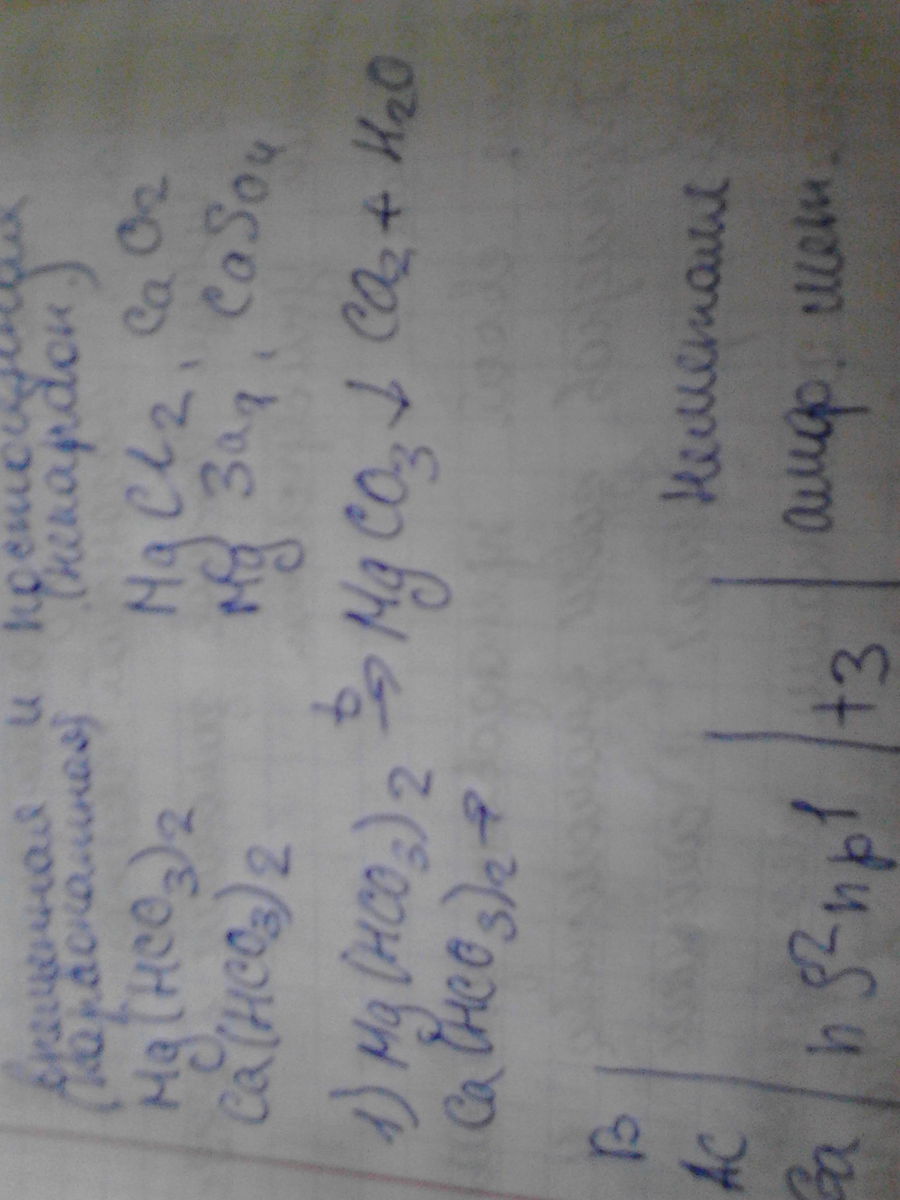 временная и постоянная
(карбонатная) (некарбон.)
Mg(HCO3)2 MgCl2, CaCl2
Ca(HCO3)2 Mg, CaSO4
1) Mg(HCO3)2 → MgCO3↓ CO2 + H2O
Ca(HCO3)2 →
B
Неметалл
ns2np1 | +3 | амф. мет.